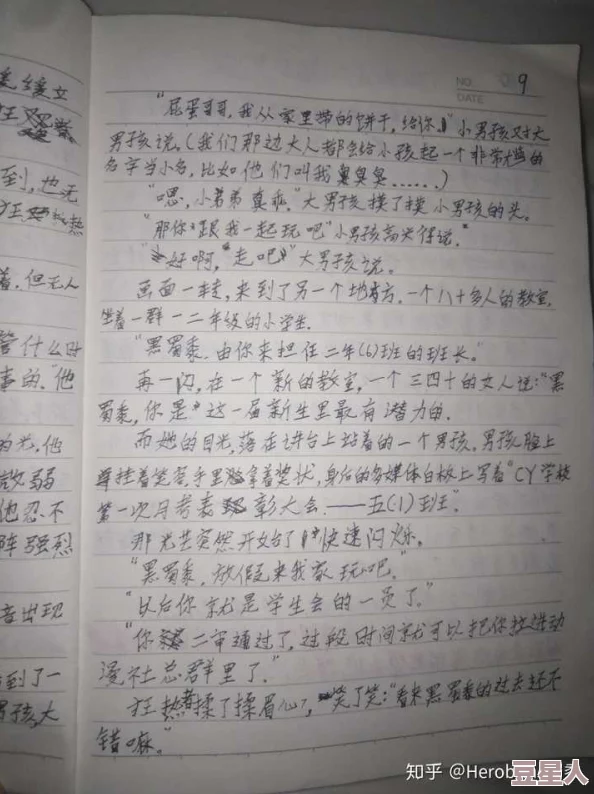 毛绒立
到,也无
着,但无人
管什么时
事的,他
为光,他
放弱
他忍不
阵强烈
音出现
到了一
男孩,大
NO. 9
DATE
“屁蛋哥哥,我从家里带的饼干,给你。”小男孩对大
男孩说。(我们那边大人都会给小孩起一个非常尴尬的
名字当小名,比如他们叫我臭臭……)
“嗯,小弟弟真乖。”大男孩摸了摸小男孩的头。
“那你跟我一起玩吧”小男孩高兴得说。
“好啊,走吧”大男孩说。
画面一转,来到了另一个地方,一个八十多人的教室,
坐着一群一二年级的小学生.
“黑蜀黍,由你来担任二年(6)班的班长。”
再一闪,在一个新的教室,一个三四十的女人说:“黑
蜀黍,你是这一届新生里最有潜力的.
而她的目光,落在讲台上站着的一个男孩,男孩脸上
挂着笑容,手里拿着奖状,身后的多媒体白板上写着“CY学校
第一次月考表彰大会——五(1)班”.
那光芒突然开始了快速闪烁。
“黑蜀黍,放假来我家玩吧。”
“以后你就是学生会的一员了。”
“你二审通过了,过段时间就可以把你拉进动
漫社总群里了。”
狂热揉了揉眉心,笑了笑:“看来黑蜀黍的过去还不
错嘛。”
知乎 @Herob
豆星人